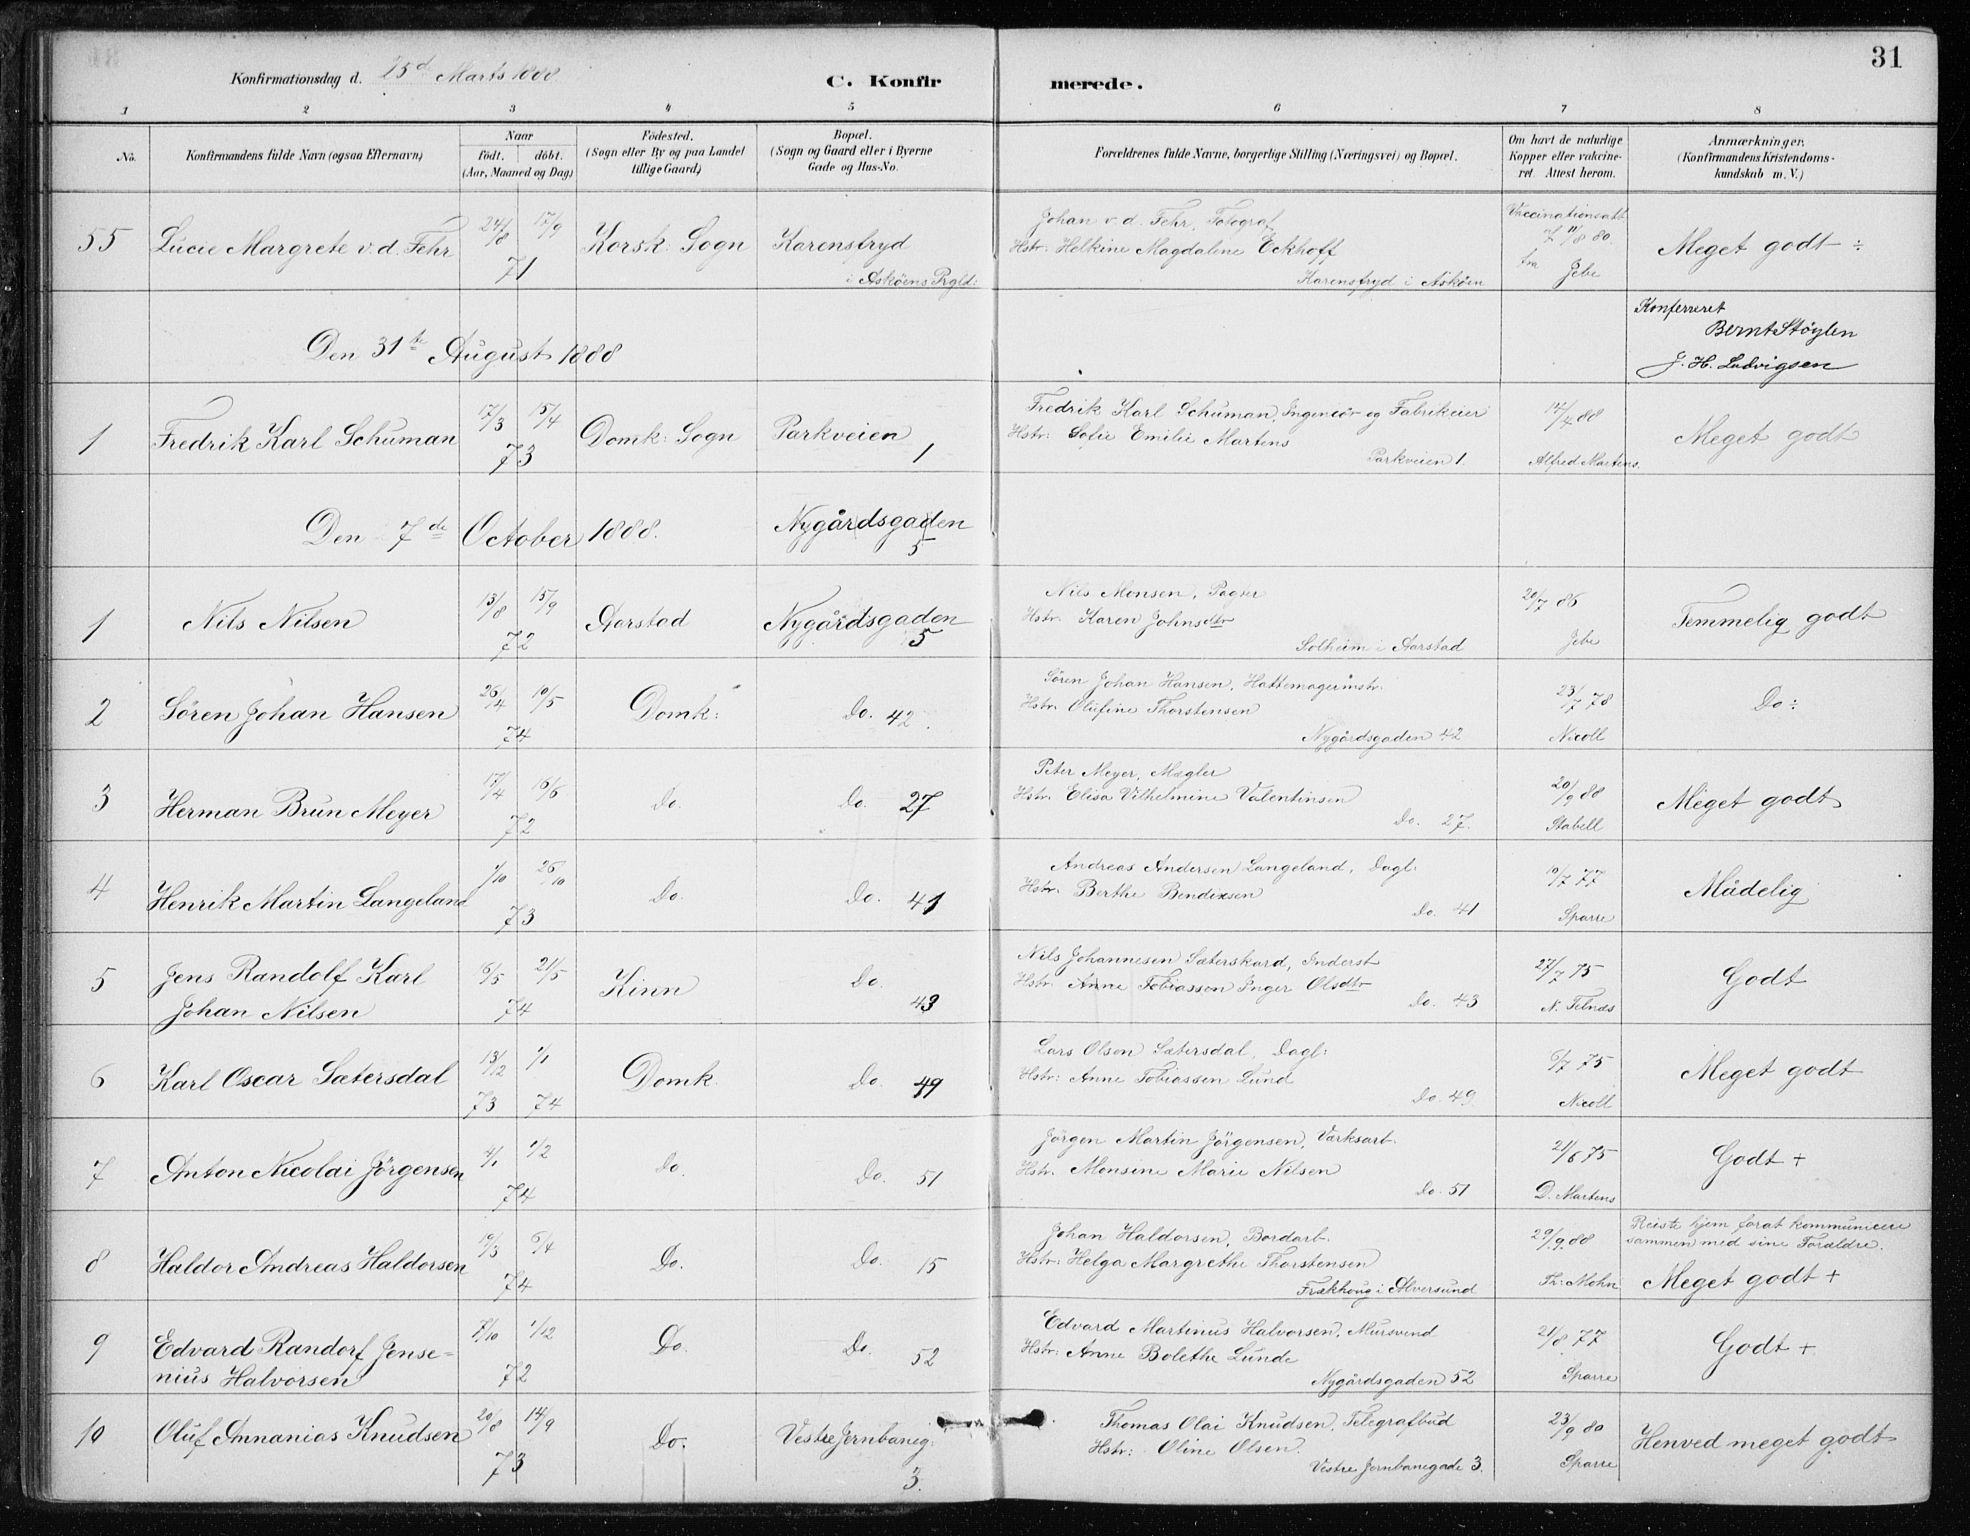 31
Konfirmationsdag d. 25d Marts 1888
C. Konfir merede.
1 2 3 4 5 6 7 8
No.
Konfirmandens fulde Navn (ogsaa Efternavn)
Naar
födt. döbt.
(Aar, Maaned og Dag)
Födested.
(Sogn eller By og paa Landet
tillige Gaard)
Bopæl.
(Sogn og Gaard eller i Byerne
Gade og Hus-No.
Forældrenes fulde Navne, borgerlige Stilling (Næringsvei) og Bopæl.
Om havt de naturlige
Kopper eller vakcine-
ret. Attest herom.
Anmærkninger.
(Konfirmandens Kristendoms-
kundskab m. V.)
55 Lucie Margrete v. d. Fehr 24/8 17/9 71 Korsk: Sogn Karensfryd
i Asköens Prgld:
Johan v. d. Fehr, Fotograf
Hstr: Helkine Magdalene Eckhoff
Karensfryd i Asköen
Vaccinationsatt
11/8 80.
fra Jebe
Meget godt ÷
Den 31te August 1888
Konferreret
Bernt Støylen
J. H. Ludvigsen
1 Fredrik Karl Schuman 17/3 15/4 73 Domk: Sogn Parkveien 1
Fredrik Karl Schuman, Ingeniör og Fabrikeier
Hstr: Sofie Emilie Martens
Parkveien 1.
14/4 88
Alfred Martens.
Meget godt
Den 7de October 1888. Nygårdsgaden
5
1 Nils Nilsen 13/8 15/9 72 Aarstad Nygårdsgaden
5
Nils Monsen,
Hstr. Karen Johnsdtr
Solheim i Aarstad
20/7 86
Jebe
Temmelig godt
2 Sören Johan Hansen 26/4 10/5 74 Domk: Do. 42.
Sören Johan Hansen, Hattemagermstr.
Hstr. Olufine Thorstensen
Nygårdsgaden 42
23/7 78
Nicoll
Do ÷
3 Herman Brun Meyer 17/4 16/6 72 Do. Do. 27
Peter Meyer, Mægler
Hstr. Elisa Vilhelmine Valentinsen
Do. 27.
20/9 88
Stabell
Meget godt
4 Henrik Martin Langeland 1/10 26/10 73 Do. Do. 41
Andreas Andersen Langeland, Dagl:
Hstr. Berthe Bendixsen
Do. 41
10/7 77
Sparre
Mådelig
5 Jens Randolf Karl
Johan Nilsen 6/5 21/5 74 Kinn Do. 43
Nils Johannesen Sæterskard, Inderst
Hstr. Anne Tobiassen Inger Olsdtr
Do. 43
27/7 75
N.
Godt
6 Karl Oscar Sætersdal 13/12 73 1/1 74 Domk. Do. 49
Lars Olsen Sætersdal, Dagl:
Hstr: Anne Tobiassen Lund
Do. 49.
6/7 75
Nicoll
Meget godt
7 Anton Nicolai Jörgensen 4/1 1/2 74 Do. Do. 51
Jörgen Martin Jörgensen, Værksarb.
Hstr. Monsine Marie Nilsen
Do. 51
21/6 75
D. Martens
Godt +
8 Haldor Andreas Haldorsen 19/3 6/4 74 Do. Do. 15
Johan Haldorsen, Bordarb.
Hstr: Helga Margrethe Thorstensen
Frækhoug i Alversund
29/9 88
Th: Mohn
Reiste hjem forat kommunicere
sammen med sine Forældre.
Meget godt +
9 Edvard Randorf Jense=
nius Halvorsen 7/10 1/12 72 Do. Do. 52
Edvard Martinus Halvorsen, Mursvend
Hstr: Anne Bolethe Lunde
Nygårdsgaden 52
21/8 77
Sparre
Godt +
10 Oluf Annanias Knudsen 20/8 14/9 73 Do. Vestre Jernbaneg:
3.
Thomas Olai Knudsen, Telegrafbud
Hstr: Oline Olsen.
Vestre Jernbanegade 3.
23/9 80
Sparre
Henved meget godt